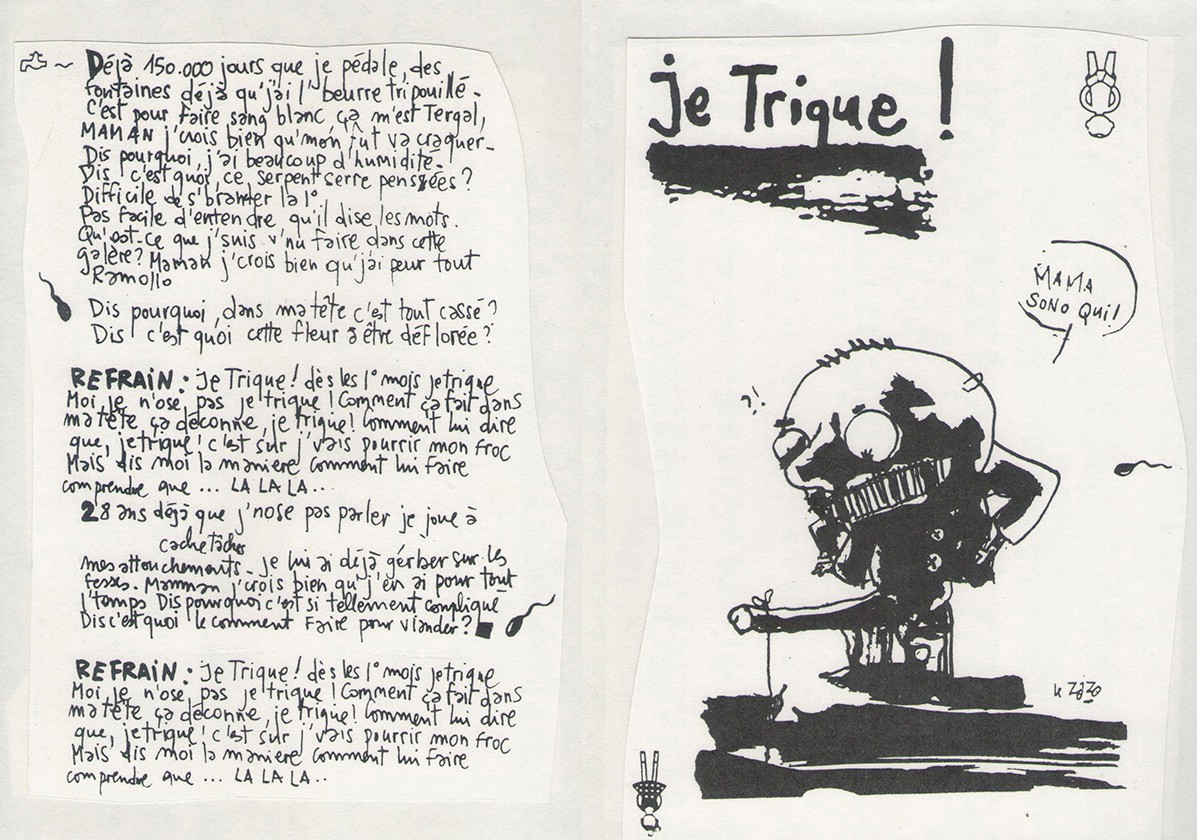 Déjà 150.000 jours que je pédale, des
fontaines déjà qu'j'ai l'beurre tripouillé -
C'est pour faire sang blanc ça m'est Tergal,
MAMAN j'crois bien qu'mon fut va craquer -
Dis pourquoi, j'ai beaucoup d'humidité -
Dis c'est quoi, ce serpent serre pensées ?
Difficile de s'brander la 1°
Pas facile d'entendre qu'il dise les mots.
Qu'est-ce que j'suis v'nu faire dans cette
galère ? Maman j'crois bien qu'j'ai peur tout
Ramollo
Dis pourquoi, dans ma tête c'est tout cassé ?
Dis c'est quoi cette fleur à être déflorée ?
REFRAIN : Je Trique ! dès les 1° mois je trique
Moi je n'ose pas je trique ! Comment ça fait dans
ma tête ça déconne, je trique ! Comment lui dire
que, je trique ! c'est sur j'vais pourrir mon froc
Mais dis moi la maniere comment lui faire
comprendre que ... LA LA LA ..
28 ans déjà que j'nose pas parler je joue à
cache tâches
mes attouchements - je lui ai déjà gérber sur les
fesses. Mamman j'crois bien qu'j'en ai pour tout
l'temps Dis pourquoi c'est si tellement compliqué
Dis c'est quoi le comment faire pour viander ?
REFRAIN : Je Trique ! dès les 1° mois je trique
Moi je n'ose pas je trique ! Comment ça fait dans
ma tête ça déconne, je trique ! Comment lui dire
que, je trique ! c'est sur j'vais pourrir mon froc
Mais dis moi la maniere comment lui faire
comprendre que ... LA LA LA ..
je Trique !
MAMA
SONO QUI !
?!
le ZaZo